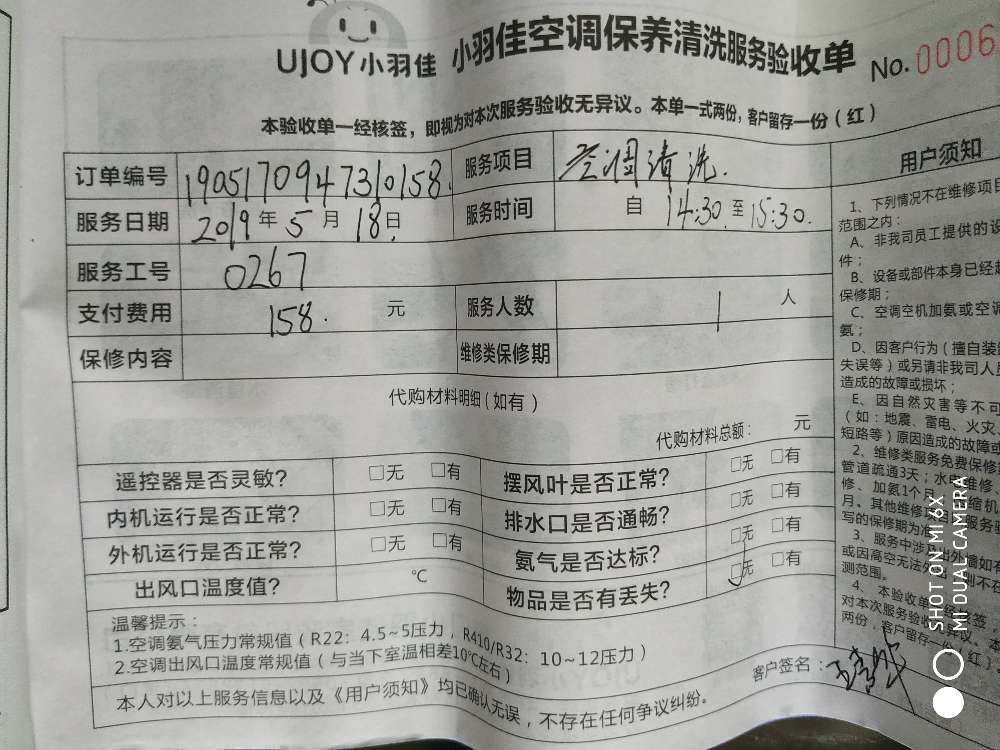 UJOY小羽佳 小羽佳空调保养清洗服务验收单 No.0006
本验收单一经核签，即视为对本次服务验收无异议。本单一式两份，客户留存一份（红）
订单编号 1905170947310158. 服务项目 空调清洗.
服务日期 2019年5月18日 服务时间 自 14:30 至 15:30.
服务工号 0267
支付费用 158. 元 服务人数 1 人
保修内容 维修类保修期
代购材料明细（如有）
代购材料总额： 元
遥控器是否灵敏? □无 □有 摆风叶是否正常? □无 □有
内机运行是否正常? □无 □有 排水口是否通畅? □无 □有
外机运行是否正常? □无 □有 氨气是否达标? □无 □有
出风口温度值? ℃ 物品是否有丢失? □无 □有
温馨提示：
1.空调氨气压力常规值（R22：4.5~5压力，R410/R32：10~12压力）
2.空调出风口温度常规值（与当下室温相差10℃左右）
客户签名：
本人对以上服务信息以及《用户须知》均已确认无误，不存在任何争议纠纷。
用户须知
1、下列情况不在维修项目
范围之内：
A、非我司员工提供的设
件；
B、设备或部件本身已经超
保修期；
C、空调空机加氨或空调
氨；
D、因客户行为（擅自装
失误等）或另请非我司人员
造成的故障或损坏；
E、因自然灾害等不可
（如：地震、雷电、火灾、
短路等）原因造成的故障或
2、维修类服务免费保修
管道疏通3天；水电维修、
修、加氨1个月
月，其他维修
写的保修期为准
3、服务中涉及
或因高空无法
测范围。
4、本验收单一经核签，
对本次服务验收无异议。本
两份，客户留存一份（红）
SHOT ON MI 6X
MI DUAL CAMERA